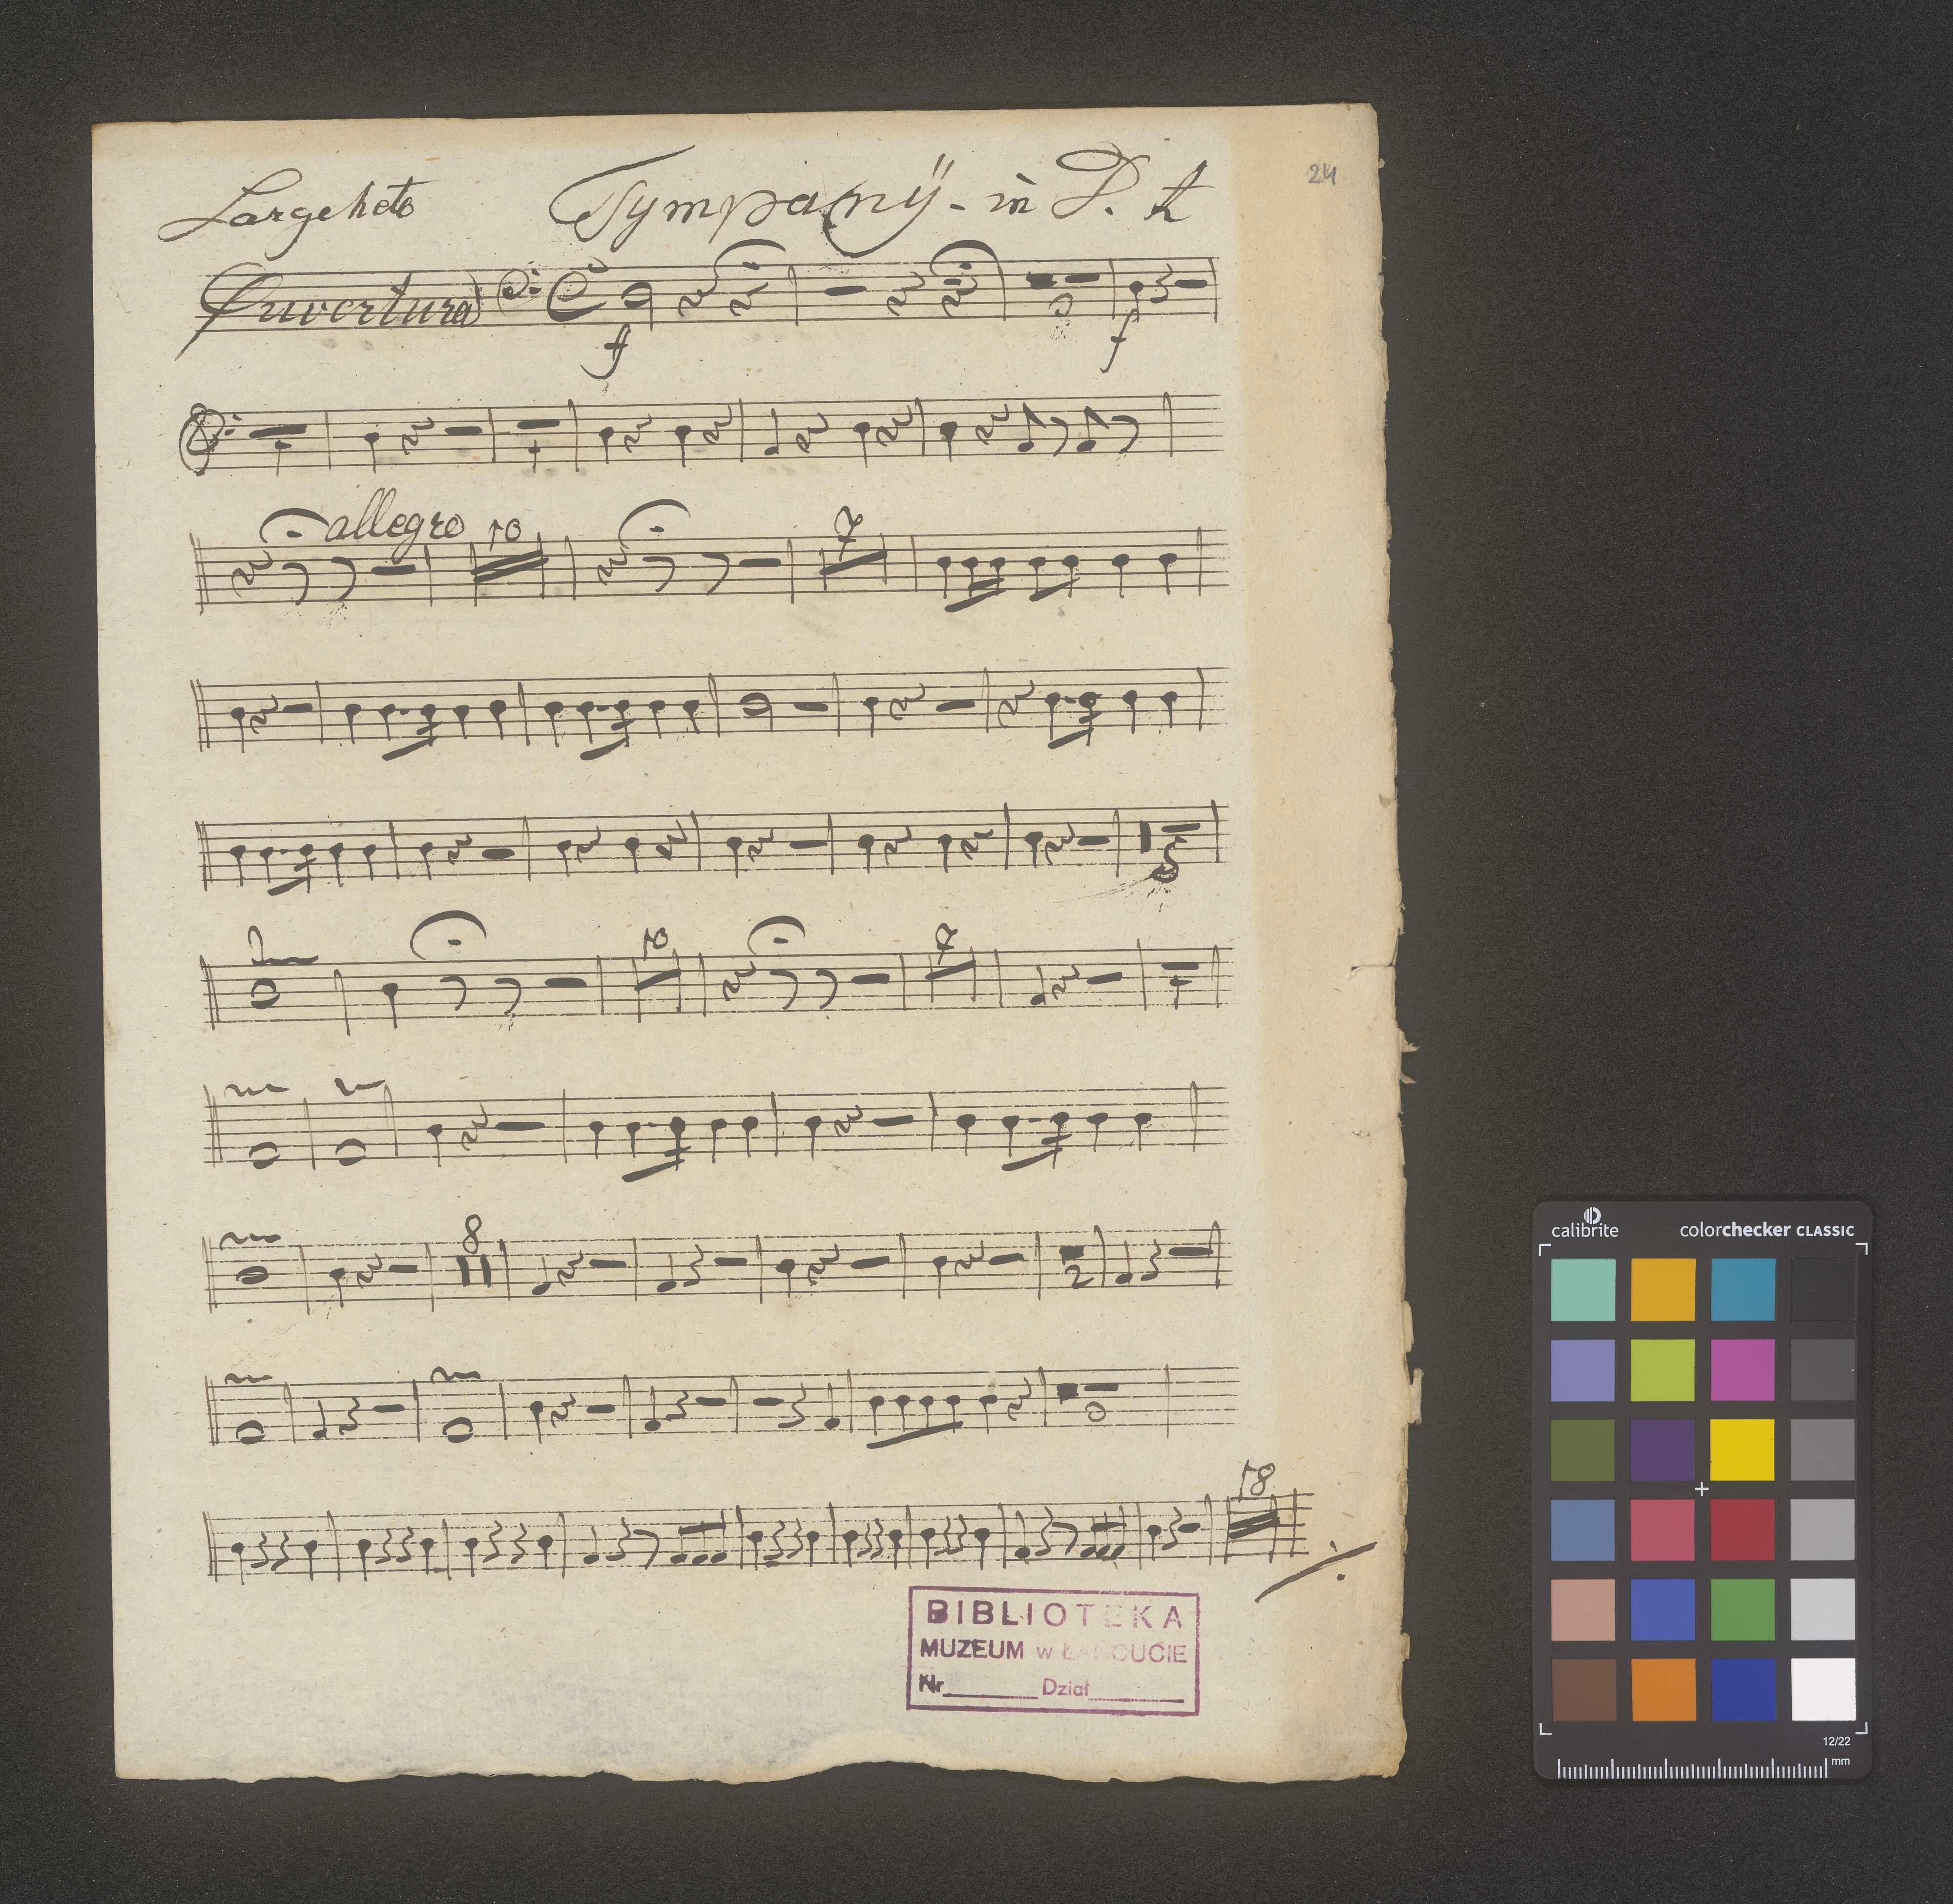 24
Largeheto Tympanÿ - in D. A
Ouvertura
f f
3
1 1
allegro 10 7
5
10 7
1
8
2
18
BIBLIOTEKA
MUZEUM w ŁAŃCUCIE
Nr Dział
calibrite colorchecker CLASSIC
12/22
mm